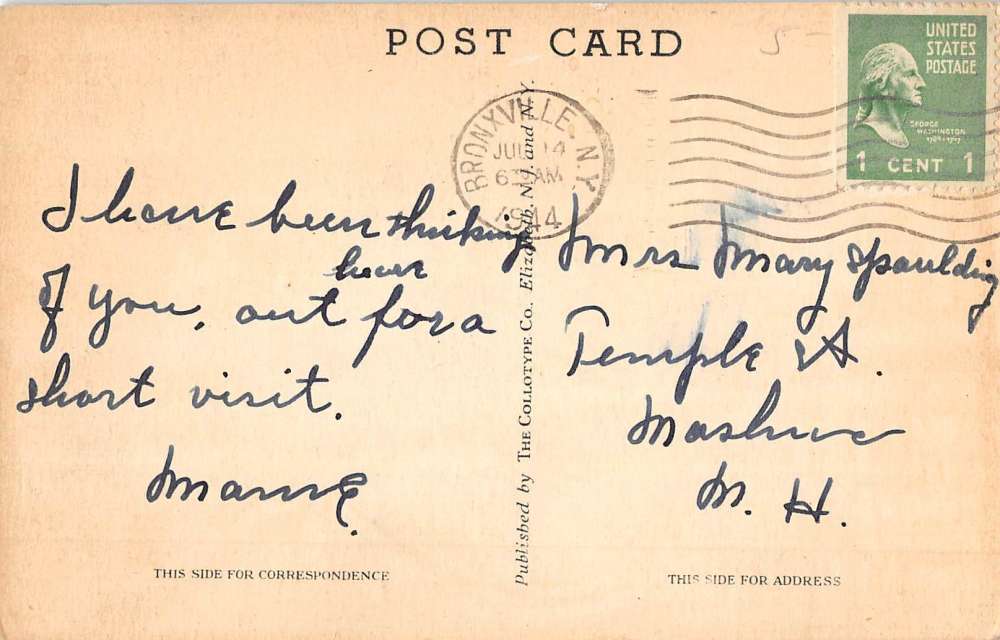 POST CARD
5-
UNITED
STATES
POSTAGE
GEORGE
WASHINGTON
1 CENT 1
BRONXVILLE, N.Y.
JUL 14
AM
1944
I have been thinking
of you, out here for a
short visit.
Mame.
Mrs Mary Spaulding
Temple St.
Nashua
N. H.
Published by THE COLLOTYPE CO. Elizabeth, N.J. and N.Y.
THIS SIDE FOR CORRESPONDENCE
THIS SIDE FOR ADDRESS